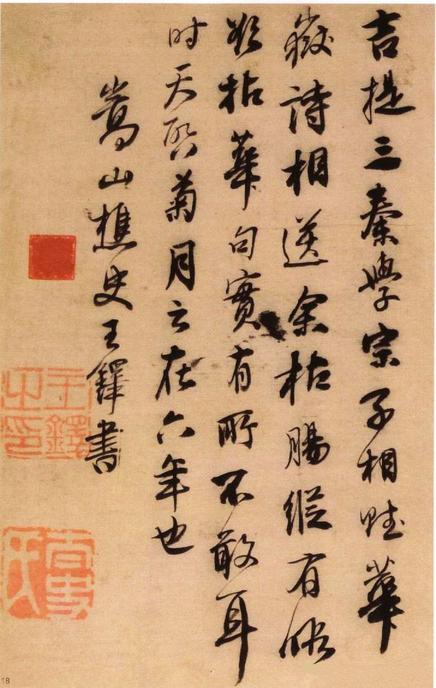 吉提三秦學宗子相賦華
嶽詩相送余枯腸縱有
拈華句實有所不敢耳
时天啓菊月云在六年也
嵩山樵史王鐸書
王鐸之印
18